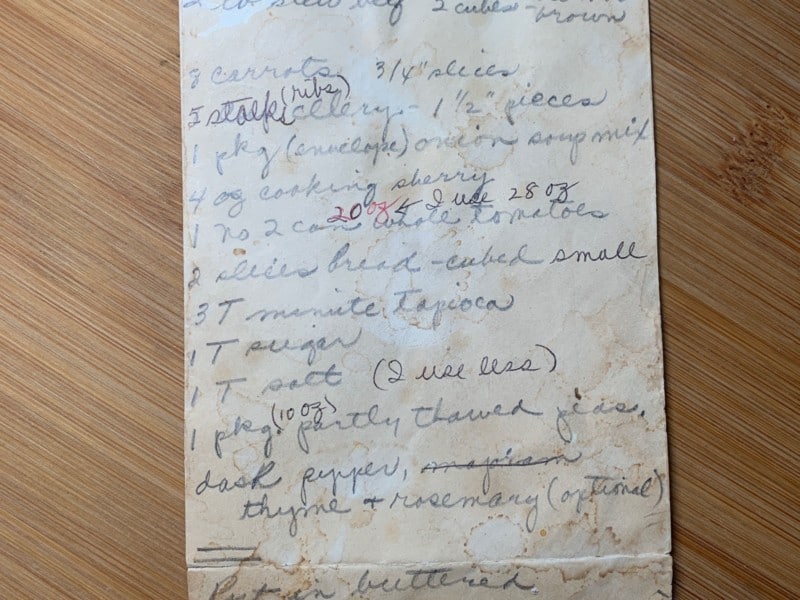 2 lb stew beef 2" cubes - brown
8 carrots 3/4" slices
(ribs)
5 stalks cellery - 1 1/2" pieces
1 pkg (envelope) onion soup mix
4 oz cooking sherry
20 oz I use 28 oz
1 no 2 can whole tomatoes
2 slices bread - cubed small
3 T minute Tapioca
1 T sugar
1 T salt (I use less)
(10 oz)
1 pkg. partly thawed peas.
dash pepper,
thyme + rosemary (optional)
Put in buttered